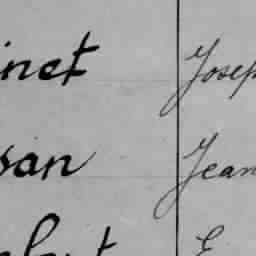 inet Josep
san Jean